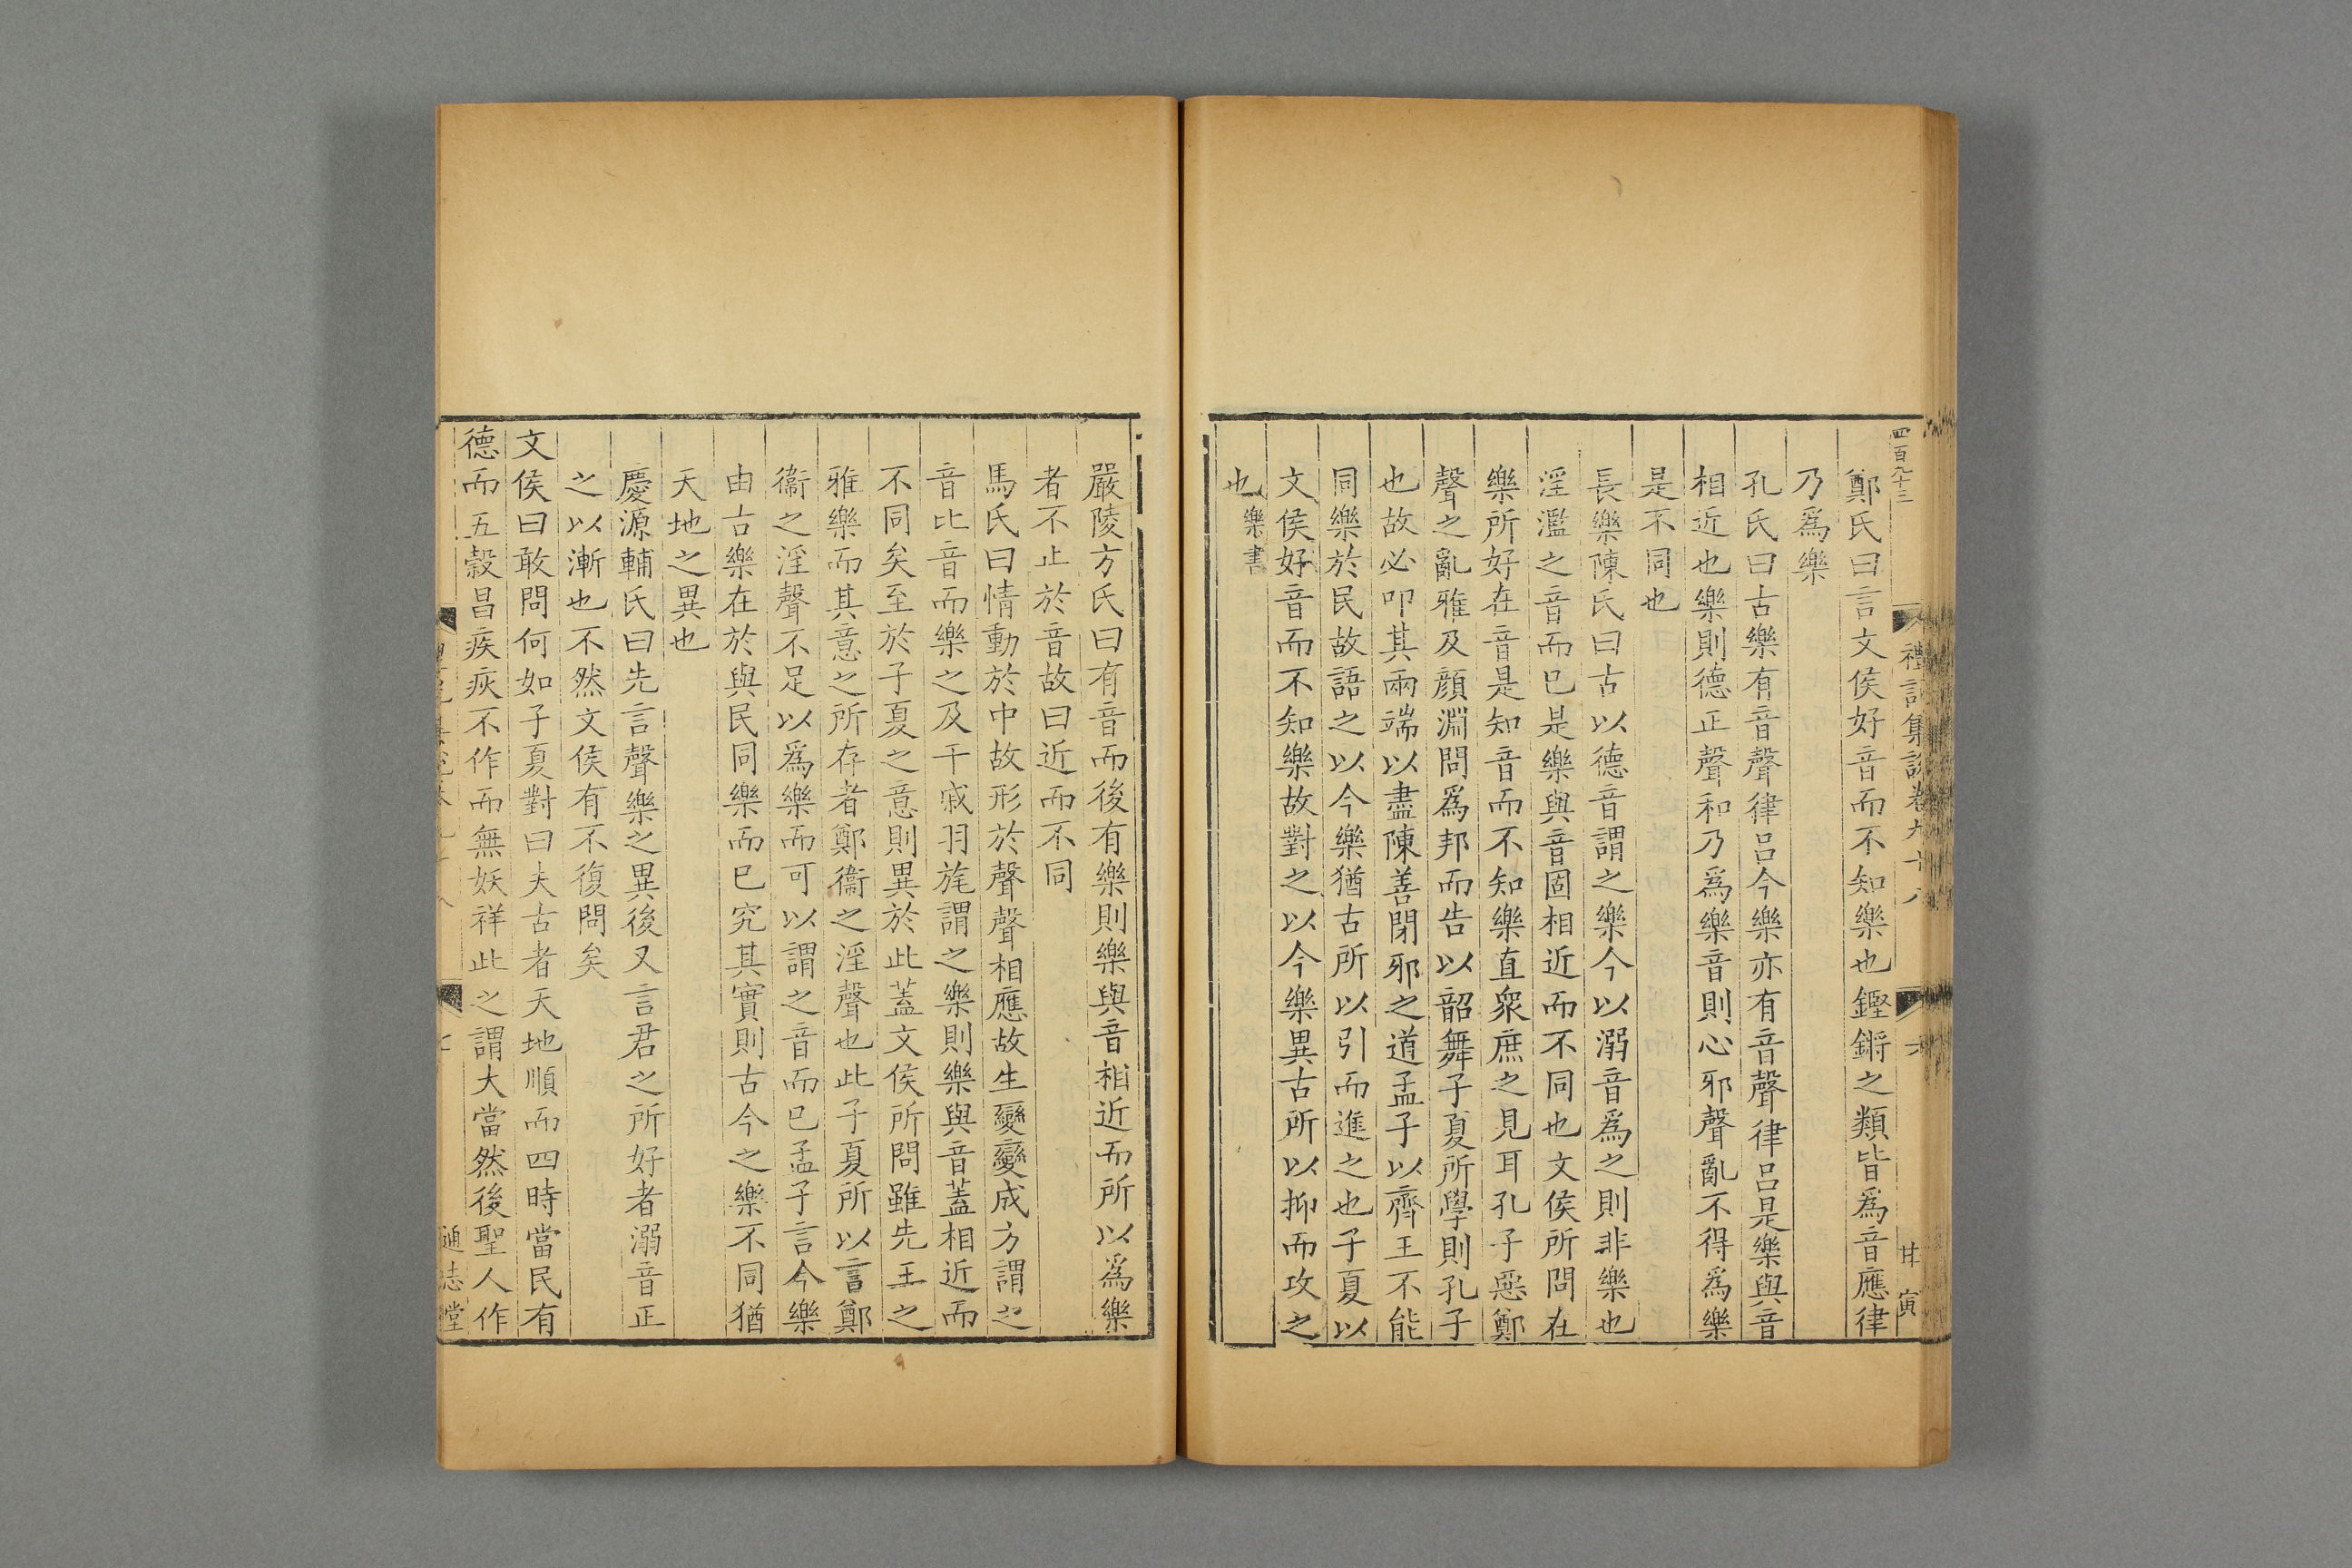 四百九十三
禮記集說卷九十八
六
甘寅
鄭氏曰言文侯好音而不知樂也鏗鏘之類皆爲音應律
乃爲樂
孔氏曰古樂有音聲律呂今樂亦有音聲律呂是樂與音
相近也樂則德正聲和乃爲樂音則心邪聲亂不得爲樂
是不同也
長樂陳氏曰古以德音謂之樂今以溺音爲之則非樂也
淫濫之音而已是樂與音固相近而不同也文侯所問在
樂所好在音是知音而不知樂直衆庶之見耳孔子惡鄭
聲之亂雅及顔淵問爲邦而告以韶舞子夏所學則孔子
也故必叩其兩端以盡陳善閉邪之道孟子以齊王不能
同樂於民故語之以今樂猶古所以引而進之也子夏以
文侯好音而不知樂故對之以今樂異古所以抑而攻之
也樂書
嚴陵方氏曰有音而後有樂則樂與音相近而所以爲樂
者不止於音故曰近而不同
馬氏曰情動於中故形於聲聲相應故生變變成方謂之
音比音而樂之及干戚羽旄謂之樂則樂與音蓋相近而
不同矣至於子夏之意則異於此蓋文侯所問雖先王之
雅樂而其意之所存者鄭衞之淫聲也此子夏所以言鄭
衞之淫聲不足以爲樂而可以謂之音而已孟子言今樂
由古樂在於與民同樂而已究其實則古今之樂不同猶
天地之異也
慶源輔氏曰先言聲樂之異後又言君之所好者溺音正
之以漸也不然文侯有不復問矣
文侯曰敢問何如子夏對曰夫古者天地順而四時當民有
德而五穀昌疾疢不作而無妖祥此之謂大當然後聖人作
通志堂